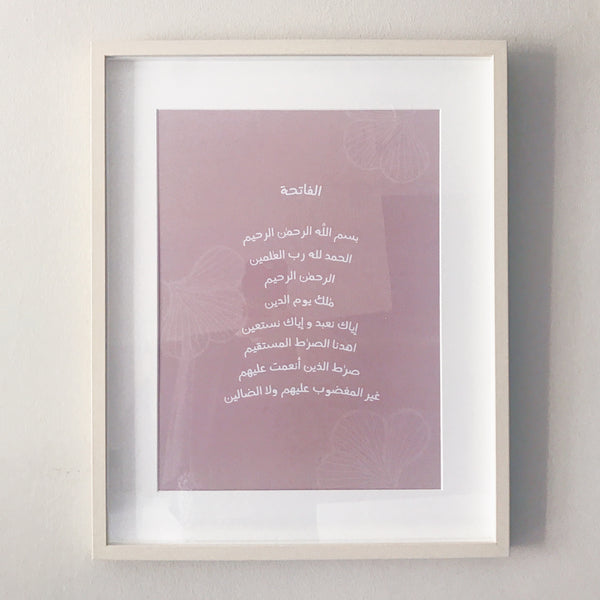 الفاتحة
بسم الله الرحمٰن الرحيم
الحمد لله رب العٰلمين
الرحمٰن الرحيم
مٰلك يوم الدين
إياك نعبد و إياك نستعين
اهدنا الصرٰط المستقيم
صرٰط الذين أنعمت عليهم
غير المغضوب عليهم ولا الضالين